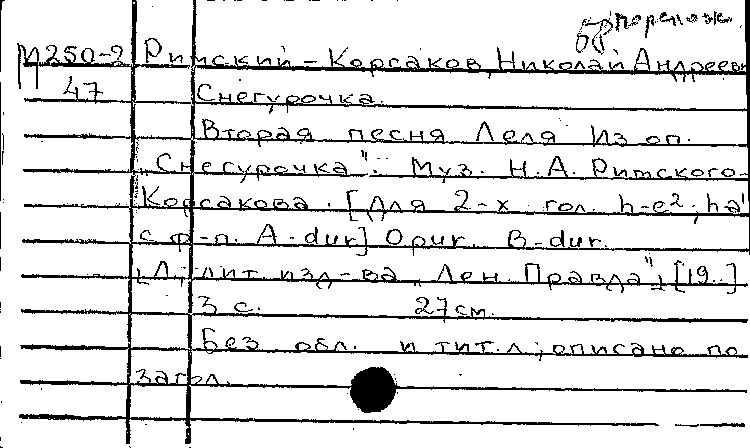 бр перелож.
М250-2 Римский-Корсаков, Николай Андреев
47 Снегурочка.
Вторая песня Леля Из оп.
„Снегурочка": Муз. Н.А. Римского-
Корсакова. [Для 2-х гол. h-e²; ha'
с ф-п. A-dur] Ориг. B-dur.
[Л., лит. изд-ва „Лен. Правда"], [19..]
3 с. 27 см.
Без обл. и тит.л.; описано по
загол.